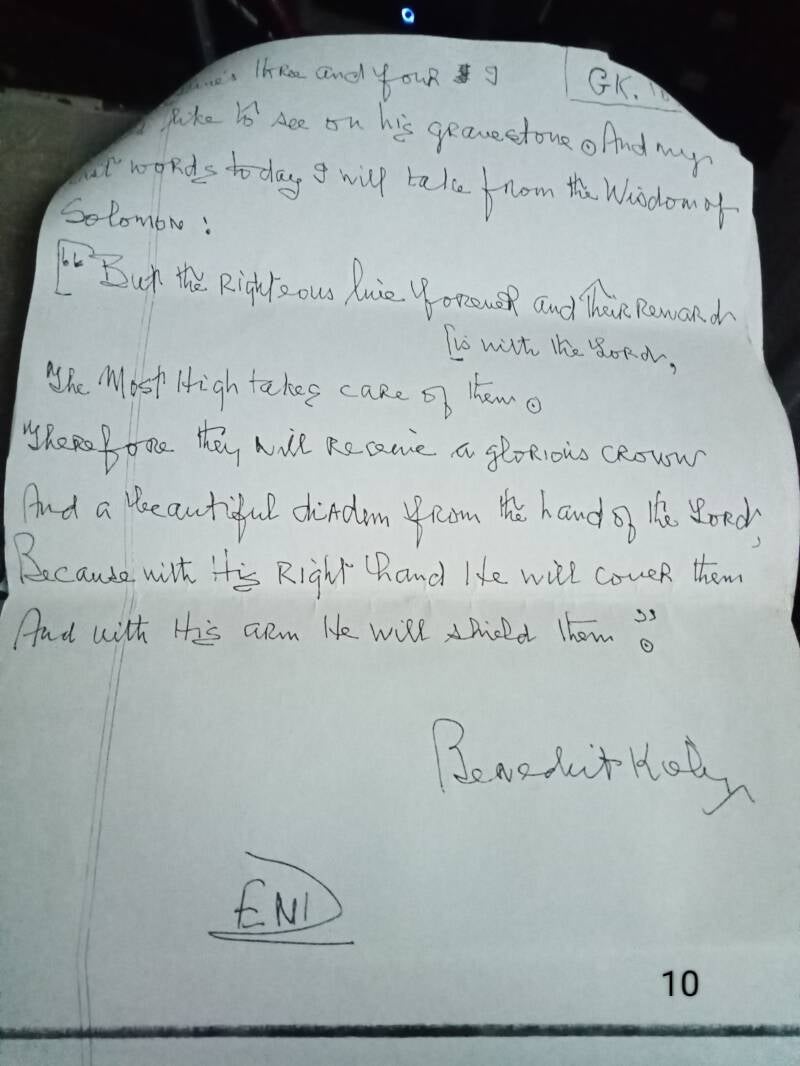 three and four I
GK. 10
like to see on his gravestone. And my
words today I will take from the Wisdom of
Solomon:
"But the Righteous live forever and their Reward
[is with the Lord,
The Most High takes care of them.
Therefore they will receive a glorious crown
And a beautiful diadem from the hand of the Lord,
Because with His Right hand He will cover them
And with His arm He will shield them".
Benedict
END
10